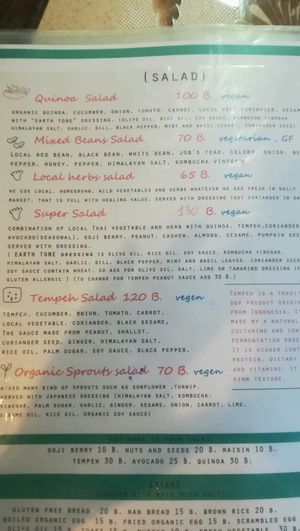 {SALAD}
Quinoa Salad 100 B. vegan
ORGANIC QUINOA, CUCUMBER, ONION, TOMATO, CARROT, LOCAL CORIANDER,
WITH "EARTH TONE" DRESSING. (OLIVE OIL, RICE OIL, SOY SAUCE, KOMBUCHA
HIMALAYAN SALT, GARLIC, DILL, BLACK PEPPER, MINT AND BASIL LEAVES, CORIANDER SEED)
Mixed Beans Salad 70 B. vegetarian, GF
LOCAL RED BEAN, BLACK BEAN, WHITE BEAN, JOB'S TEAR, CELERY, ONION,
PEPPER, HONEY, PEPPER, HIMALAYAN SALT, KOMBUCHA VINEGAR
Local herbs salad 65 B. vegan
WE USE LOCAL, HOMEGROWN, WILD VEGETABLES AND HERBS WHATEVER WE SEE FRESH IN DAILY
MARKET. THAT IS FULL WITH HEALING VALUE. SERVED WITH DRESSING (GOT CORIANDER IN
Super Salad 130 B. vegan
COMBINATION OF LOCAL THAI VEGETABLE AND HERB WITH QUINOA, TEMPEH, CORIANDER,
AVOCADO(SEASONAL), GOJI BERRY, PEANUT, CASHEW, ALMOND, SESAME, PUMPKIN
SERVED WITH DRESSING.
( EARTH TONE DRESSING IS OLIVE OIL, RICE OIL, SOY SAUCE, KOMBUCHA VINEGAR,
HIMALAYAN SALT, GARLIC, DILL, BLACK PEPPER, MINT AND BASIL LEAVES, CORIANDER
SOY SAUCE CONTAIN WHEAT, SO ASK FOR OLIVE OIL, SALT, LIME OR TAMARIND DRESSING
GLUTEN ALLERGIC ) (TO CHANGE FOR TEMPEH PEANUT SAUCE ADD 30 B.)
Tempeh Salad 120 B. vegan
TEMPEH, CUCUMBER, ONION, TOMATO, CARROT,
LOCAL VEGETABLE, CORIANDER, BLACK SESAME,
THE SAUCE MADE FROM PEANUT, SHALLOT,
CORIANDER SEED, GINGER, HIMALAYAN SALT,
RICE OIL, PALM SUGAR, SOY SAUCE, BLACK PEPPER.
TEMPEH IS A
SOY PRODUCT
FROM INDONESIA.
MADE BY A NATURAL
CULTURING AND
FERMENTATION
IT IS HIGHER
PROTEIN, DIETARY
AND VITAMINS. IT
FIRM TEXTURE.
Organic Sprouts salad 70 B. vegan
MIXED MANY KIND OF SPROUTS SUCH AS SUNFLOWER ,TURNIP.
SERVED WITH JAPANESE DRESSING (HIMALAYAN SALT, KOMBUCHA-
VINEGAR, PALM SUGAR, GARLIC, GINGER, SESAME, ONION, CARROT, LIME,
OIL, RICE OIL, ORGANIC SOY SAUCE)
ADD MORE TO YOUR SALAD
GOJI BERRY 10 B. NUTS AND SEEDS 20 B. RAISIN 10 B.
TEMPEH 30 B. AVOCADO 25 B. QUINOA 30 B.
GLUTEN FREE BREAD 20 B. NAN BREAD 15 B. BROWN RICE 20 B.
BOILED ORGANIC EGG 15 B. FRIED ORGANIC EGG 15 B. SCRAMBLED EGG